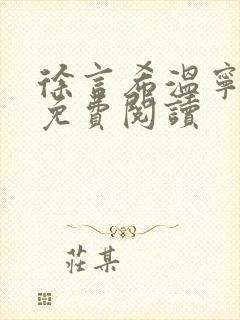 徐言希溫寧
免費閱讀
莊某